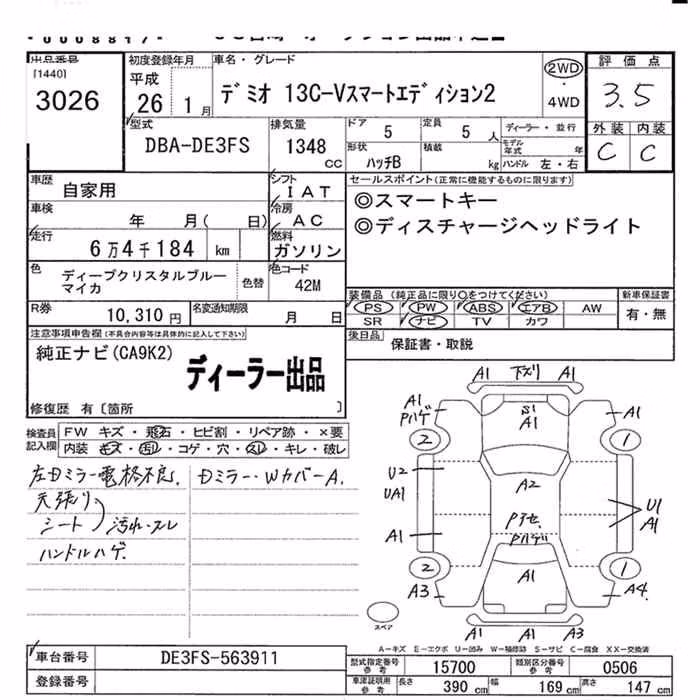 出品番号
[1440]
3026
初度登録年月
平成
26 1月
車名・グレード
デミオ 13C-Vスマートエディション2
2WD
・
4WD
評価点
3.5
外装 内装
C C
型式
DBA-DE3FS
排気量
1348
CC
ドア 5
定員 5 人
ディーラー・並行
形状 ハッチB
積載 kg
モデル年式 年
ハンドル 左・右
車歴 自家用
シフト IAT
車検 年 月( 日)
冷房 AC
走行 6万4千184 km
燃料 ガソリン
色 ディープクリスタルブルー
マイカ
色替
色コード 42M
R券 10,310円
名変通知期限 月 日
セールスポイント(正常に機能するものに限ります)
◎スマートキー
◎ディスチャージヘッドライト
装備品 (純正品に限り○をつけてください)
PS PW ABS エアB AW
SR ナビ TV カワ
新車保証書
有・無
後日品 保証書・取説
注意事項申告欄(不具合内容等は具体的に記入して下さい)
純正ナビ(CA9K2)
ディーラー出品
修復歴 有〔箇所 〕
検査員記入欄
FW キズ・飛石・ヒビ割・リペア跡・×要
内装 キズ・汚れ・コゲ・穴・スレ・キレ・破レ
左Dミラー電格不良.
天張り
シート 汚れ・スレ
ハンドルハゲ.
Dミラー・WカバーA.
A1 下ズリ A1
A1
Pハゲ
S1
A1
A1
2 1
U2
UA1
A2
U1
A1
A1
Pヲセ
Pハゲ
2 1
A3
A1
A4
A1 A1 A3
スペア
A−キズ E−エクボ U−凹み W−補修跡 S−サビ C−腐食 XX−交換済
車台番号 DE3FS-563911
登録番号
型式指定番号参考 15700
類別区分番号参考 0506
車庫証明用参考 長さ 390 cm 幅 169 cm 高さ 147 cm